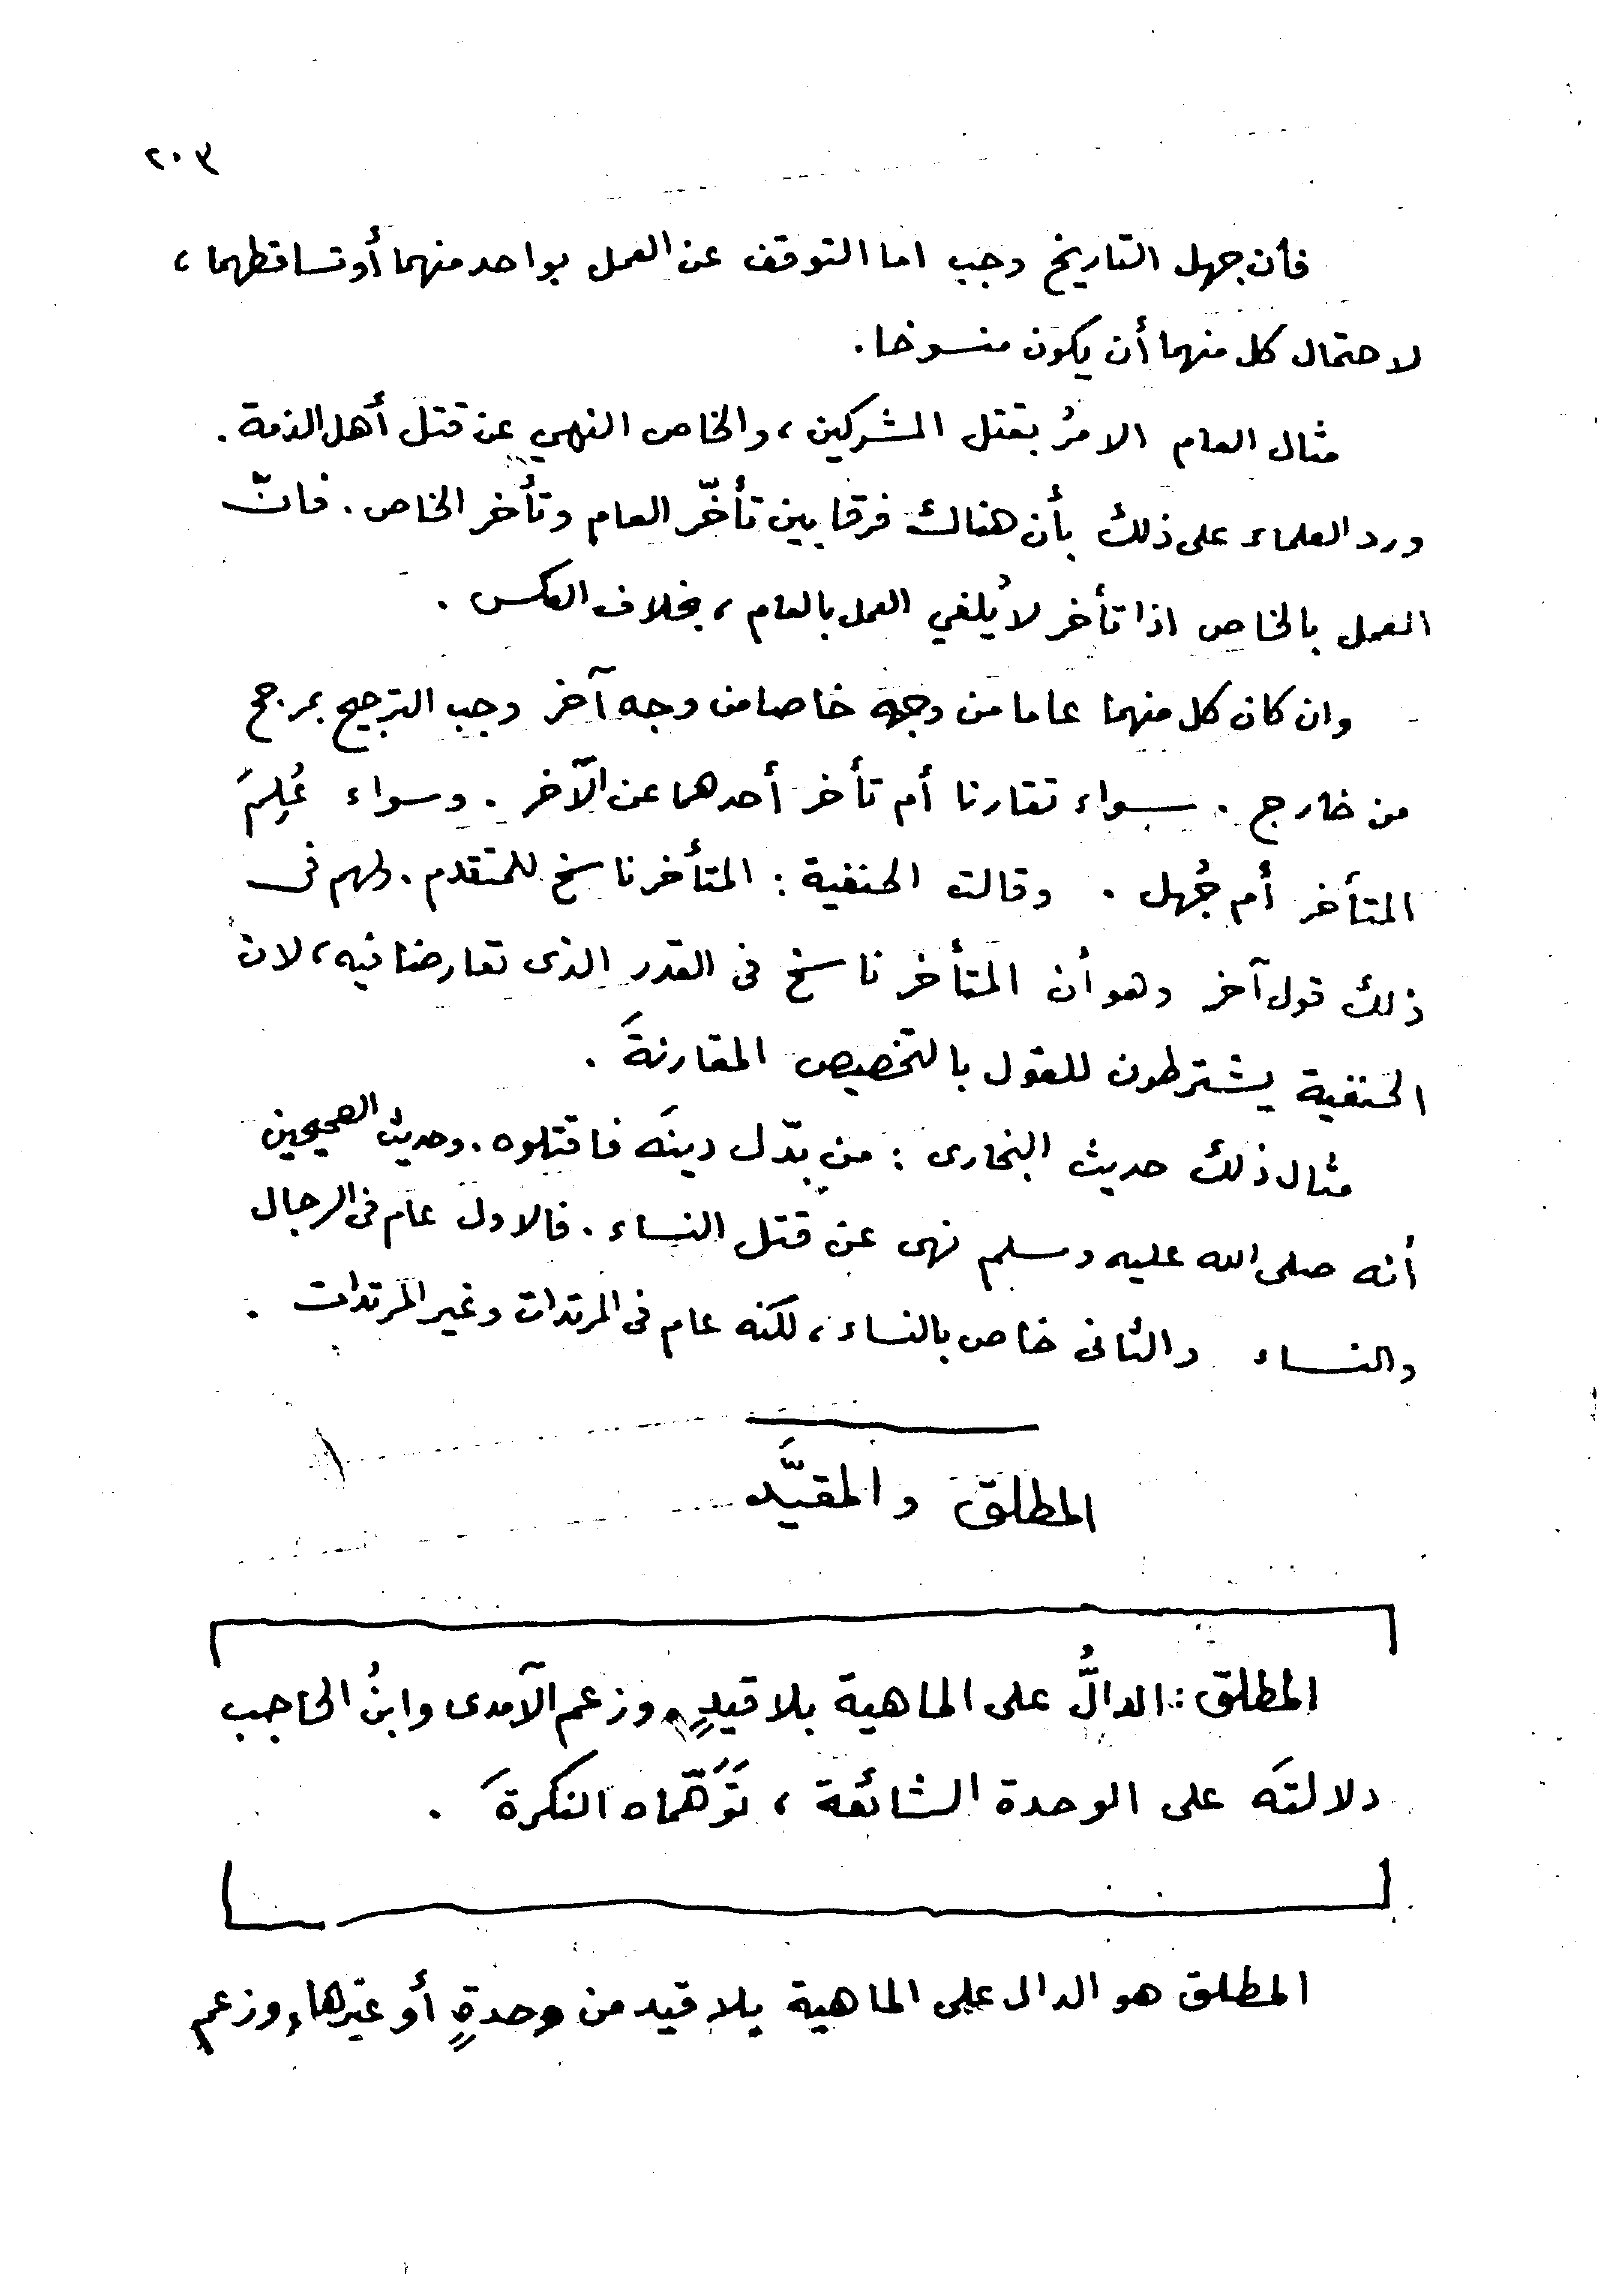 ٢٠٣
فأن جهل التاريخ وجب اما التوقف عن العمل بواحد منهما أو تساقطهما ،
لاحتمال كل منهما أن يكون منسوخا .
مثال العام الامرُ بقتل المشركين ، والخاص النهي عن قتل أهل الذمة .
ورد العلماء على ذلك بأن هناك فرقا بين تأخّر العام وتأخر الخاص . فانّ
العمل بالخاص اذا تأخر لا يُلغي العمل بالعام ، بخلاف العكس .
وان كان كل منهما عاما من وجه خاصا من وجه آخر وجب الترجيح بمرجح
من خارج . سواء تقارنا أم تأخر أحدهما عن الآخر . وسواء عُلِمَ
المتأخر أم جُهل . وقالت الحنفية : المتأخر ناسخ للمتقدم . ولهم فى
ذلك قول آخر وهو أن المتأخر ناسخ فى القدر الذى تعارضا فيه ، لان
الحنفية يشترطون للقول بالتخصيص المقارنةَ .
مثال ذلك حديث البخارى : من بدّل دينَه فاقتلوه . وحديث الصحيحين
أنه صلى الله عليه وسلم نهى عن قتل النساء . فالاول عام فى الرجال
والنساء والثانى خاص بالنساء ، لكنه عام فى المرتدات وغير المرتدات .
المطلق والمقيَّد
المطلق : الدالُّ على الماهية بلا قيدٍ . وزعم الآمدى وابنُ الحاجب
دلالتَه على الوحدة الشائعة ، تَوَهَّماه النكرةَ .
المطلق هو الدال على الماهية بلا قيد من وحدةٍ أو غيرها ، وزعم